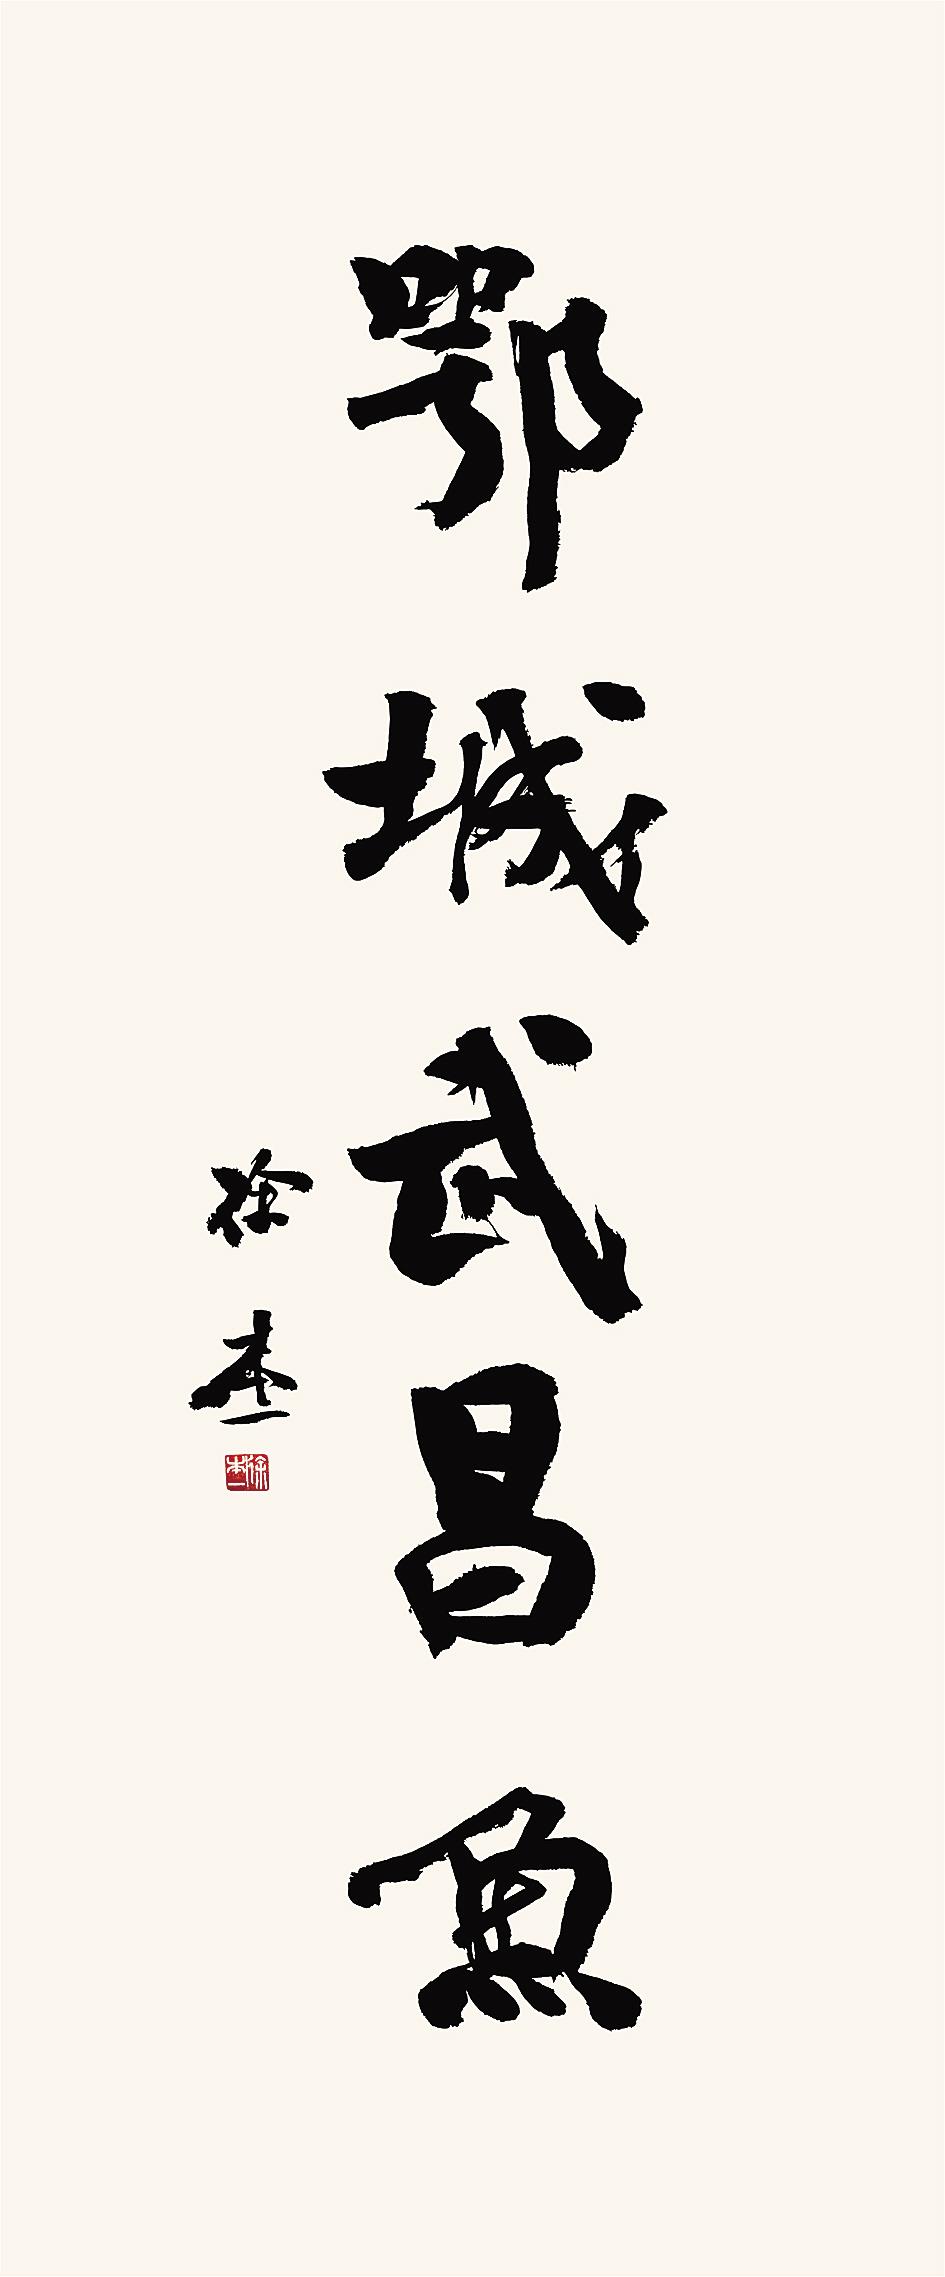 鄂城武昌魚
徐本一
徐本一